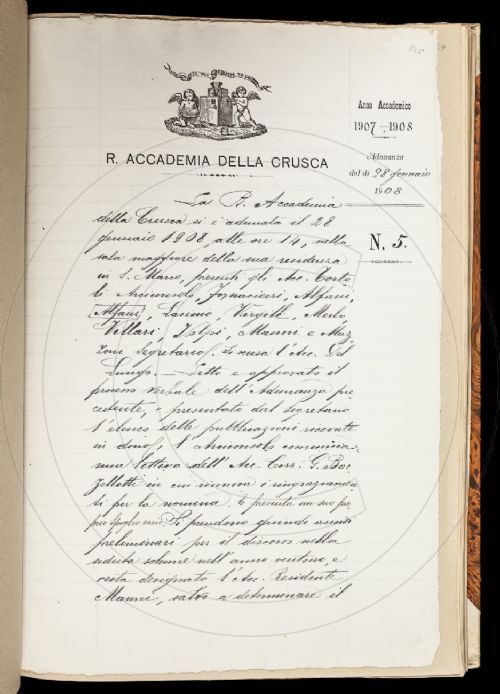 Anno Accademico
1907-1908
R. ACCADEMIA DELLA CRUSCA
Adunanza
del dì 28 gennaio
1908
N. 5.
La R. Accademia
della Crusca si è adunata il 28
gennaio 1908, alle ore 14, nella
sala maggiore della sua residenza
in S. Marco, presenti gli Acc. Torto
li Arciconsolo, Fornaciari, Alfani,
Alfani, Virgili, Merlo,
Villari, Volpi, Manni e Maz
zoni Segretario. Scusa l'Acc. Del
Lungo. — Letto e approvato il
processo verbale dell'Adunanza pre
cedente, è presentato dal segretario
l'elenco delle pubblicazioni ricevute
in dono; l'Arciconsolo comunica
una lettera dell'Acc. Corr. G. Bar
zellotti in cui rinnova i ringraziamen
ti per la nomina. È presenta un suo
Si prendono quindi accordi
preliminari per il discorso nella
seduta solenne nell'anno venturo, e
resta designato l'Acc. Residente
Manni, salvo a determinare il